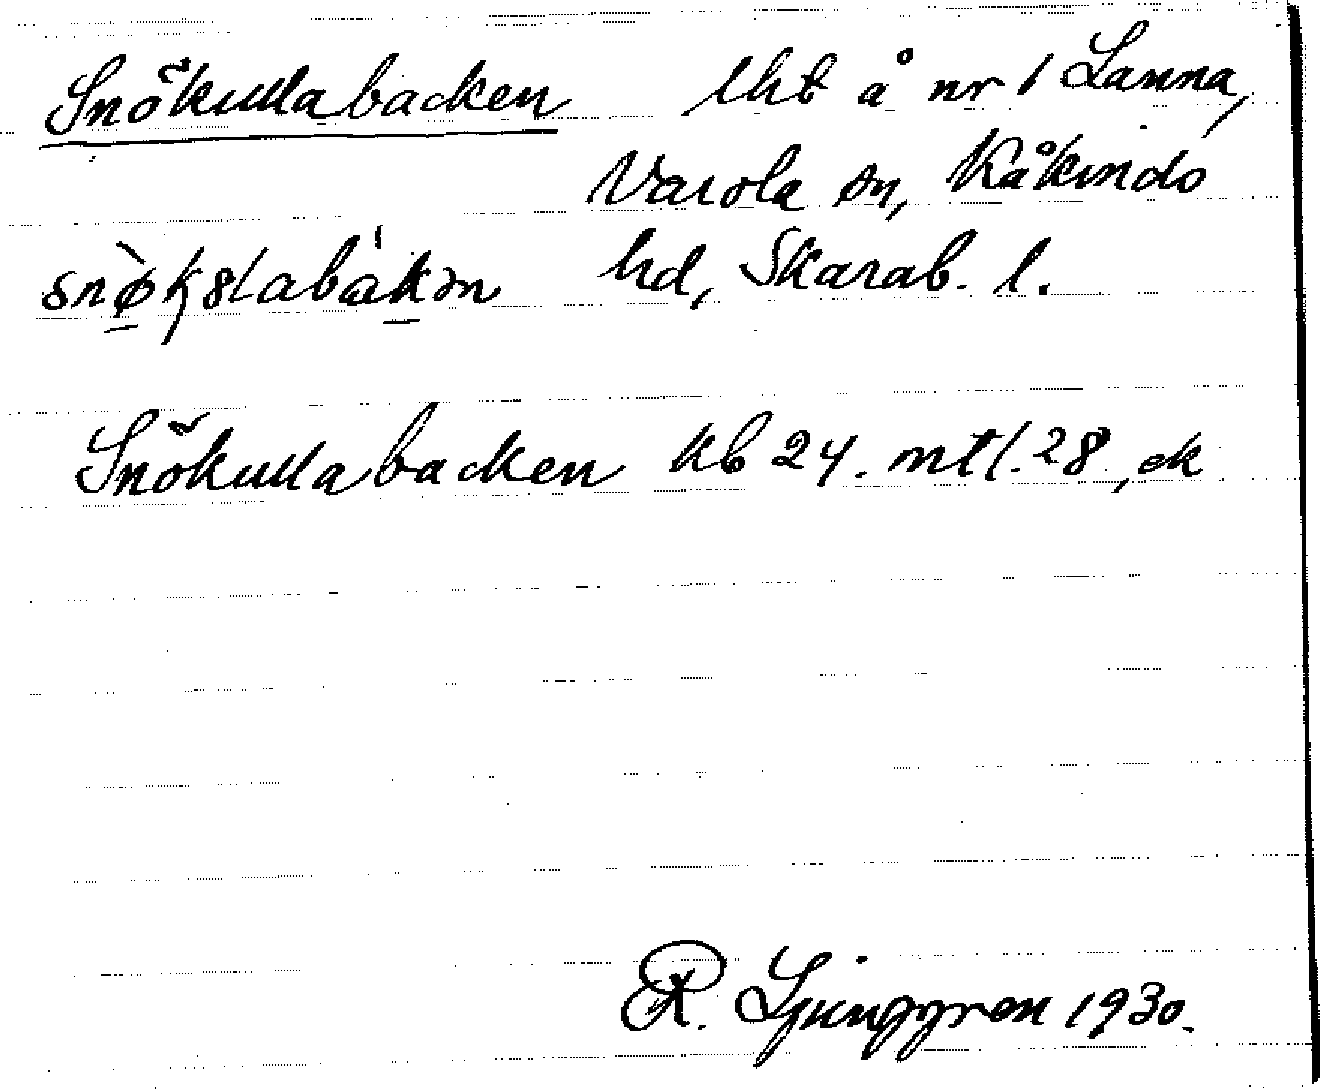 Snökullabacken lht å nr 1 Lanna,
Varola sn, Kåkinds
snø̀kslabákən hd, Skarab. l.
Snökullabacken kb 24. mtl. 28, ek
R. Ljunggren 1930.